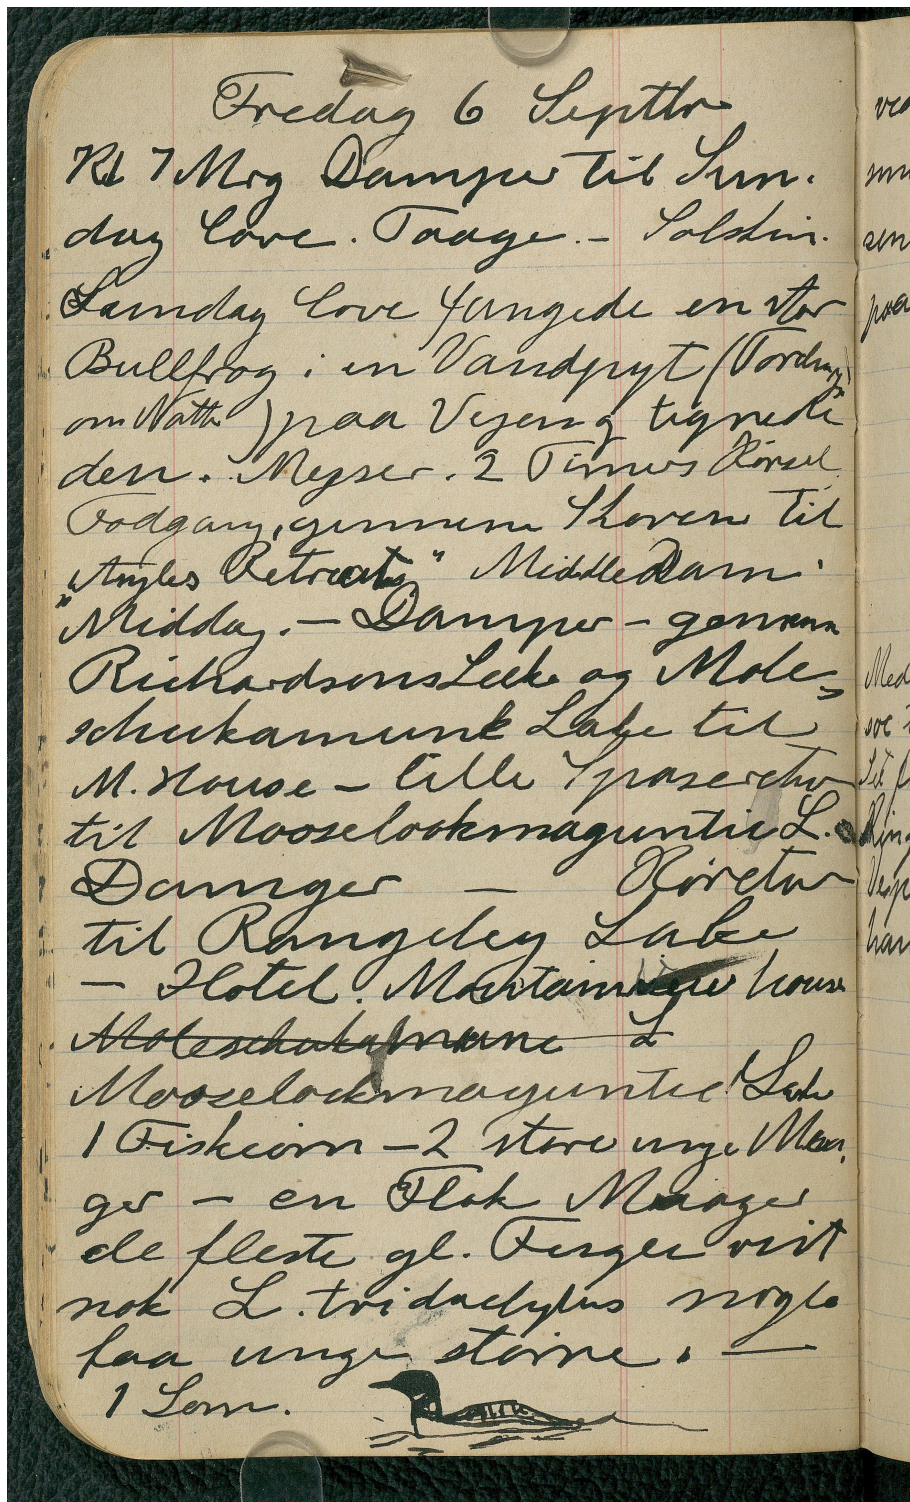 Fredag 6 Septbr
Kl 7 Mrg Damper til Sun-
day Cove. Taage. – Solskin.
Sunday Cove fangede en stor
Bullfrog i en Vandpyt (Torden
om Natten) paa Vejen og tegnede
den. Myser. 2 Timers Kørsel
Fodgang, gennem Skoven til
"Angles Retreat" Middle Dam.
Middag. – Damper – gennem
Richardsons Lake og Mole-
schukamunk Lake til
M. House – lille Spaseretur
til Mooselookmaguntic L.
Damper – Køretur
til Rangeley Lake
– Hotel. Mountainview house
Moleschukamunc L
Mooselockmaguntic Lake
1 Fiskeørn – 2 store unge Maa-
ger – en Flok Maager
de fleste gl. Fugle vist
nok L. tridactylus nogle
faa unge større. –
1 Lom.
ved
sen
paa
Med
soe
Set
Ring
Vesp
har